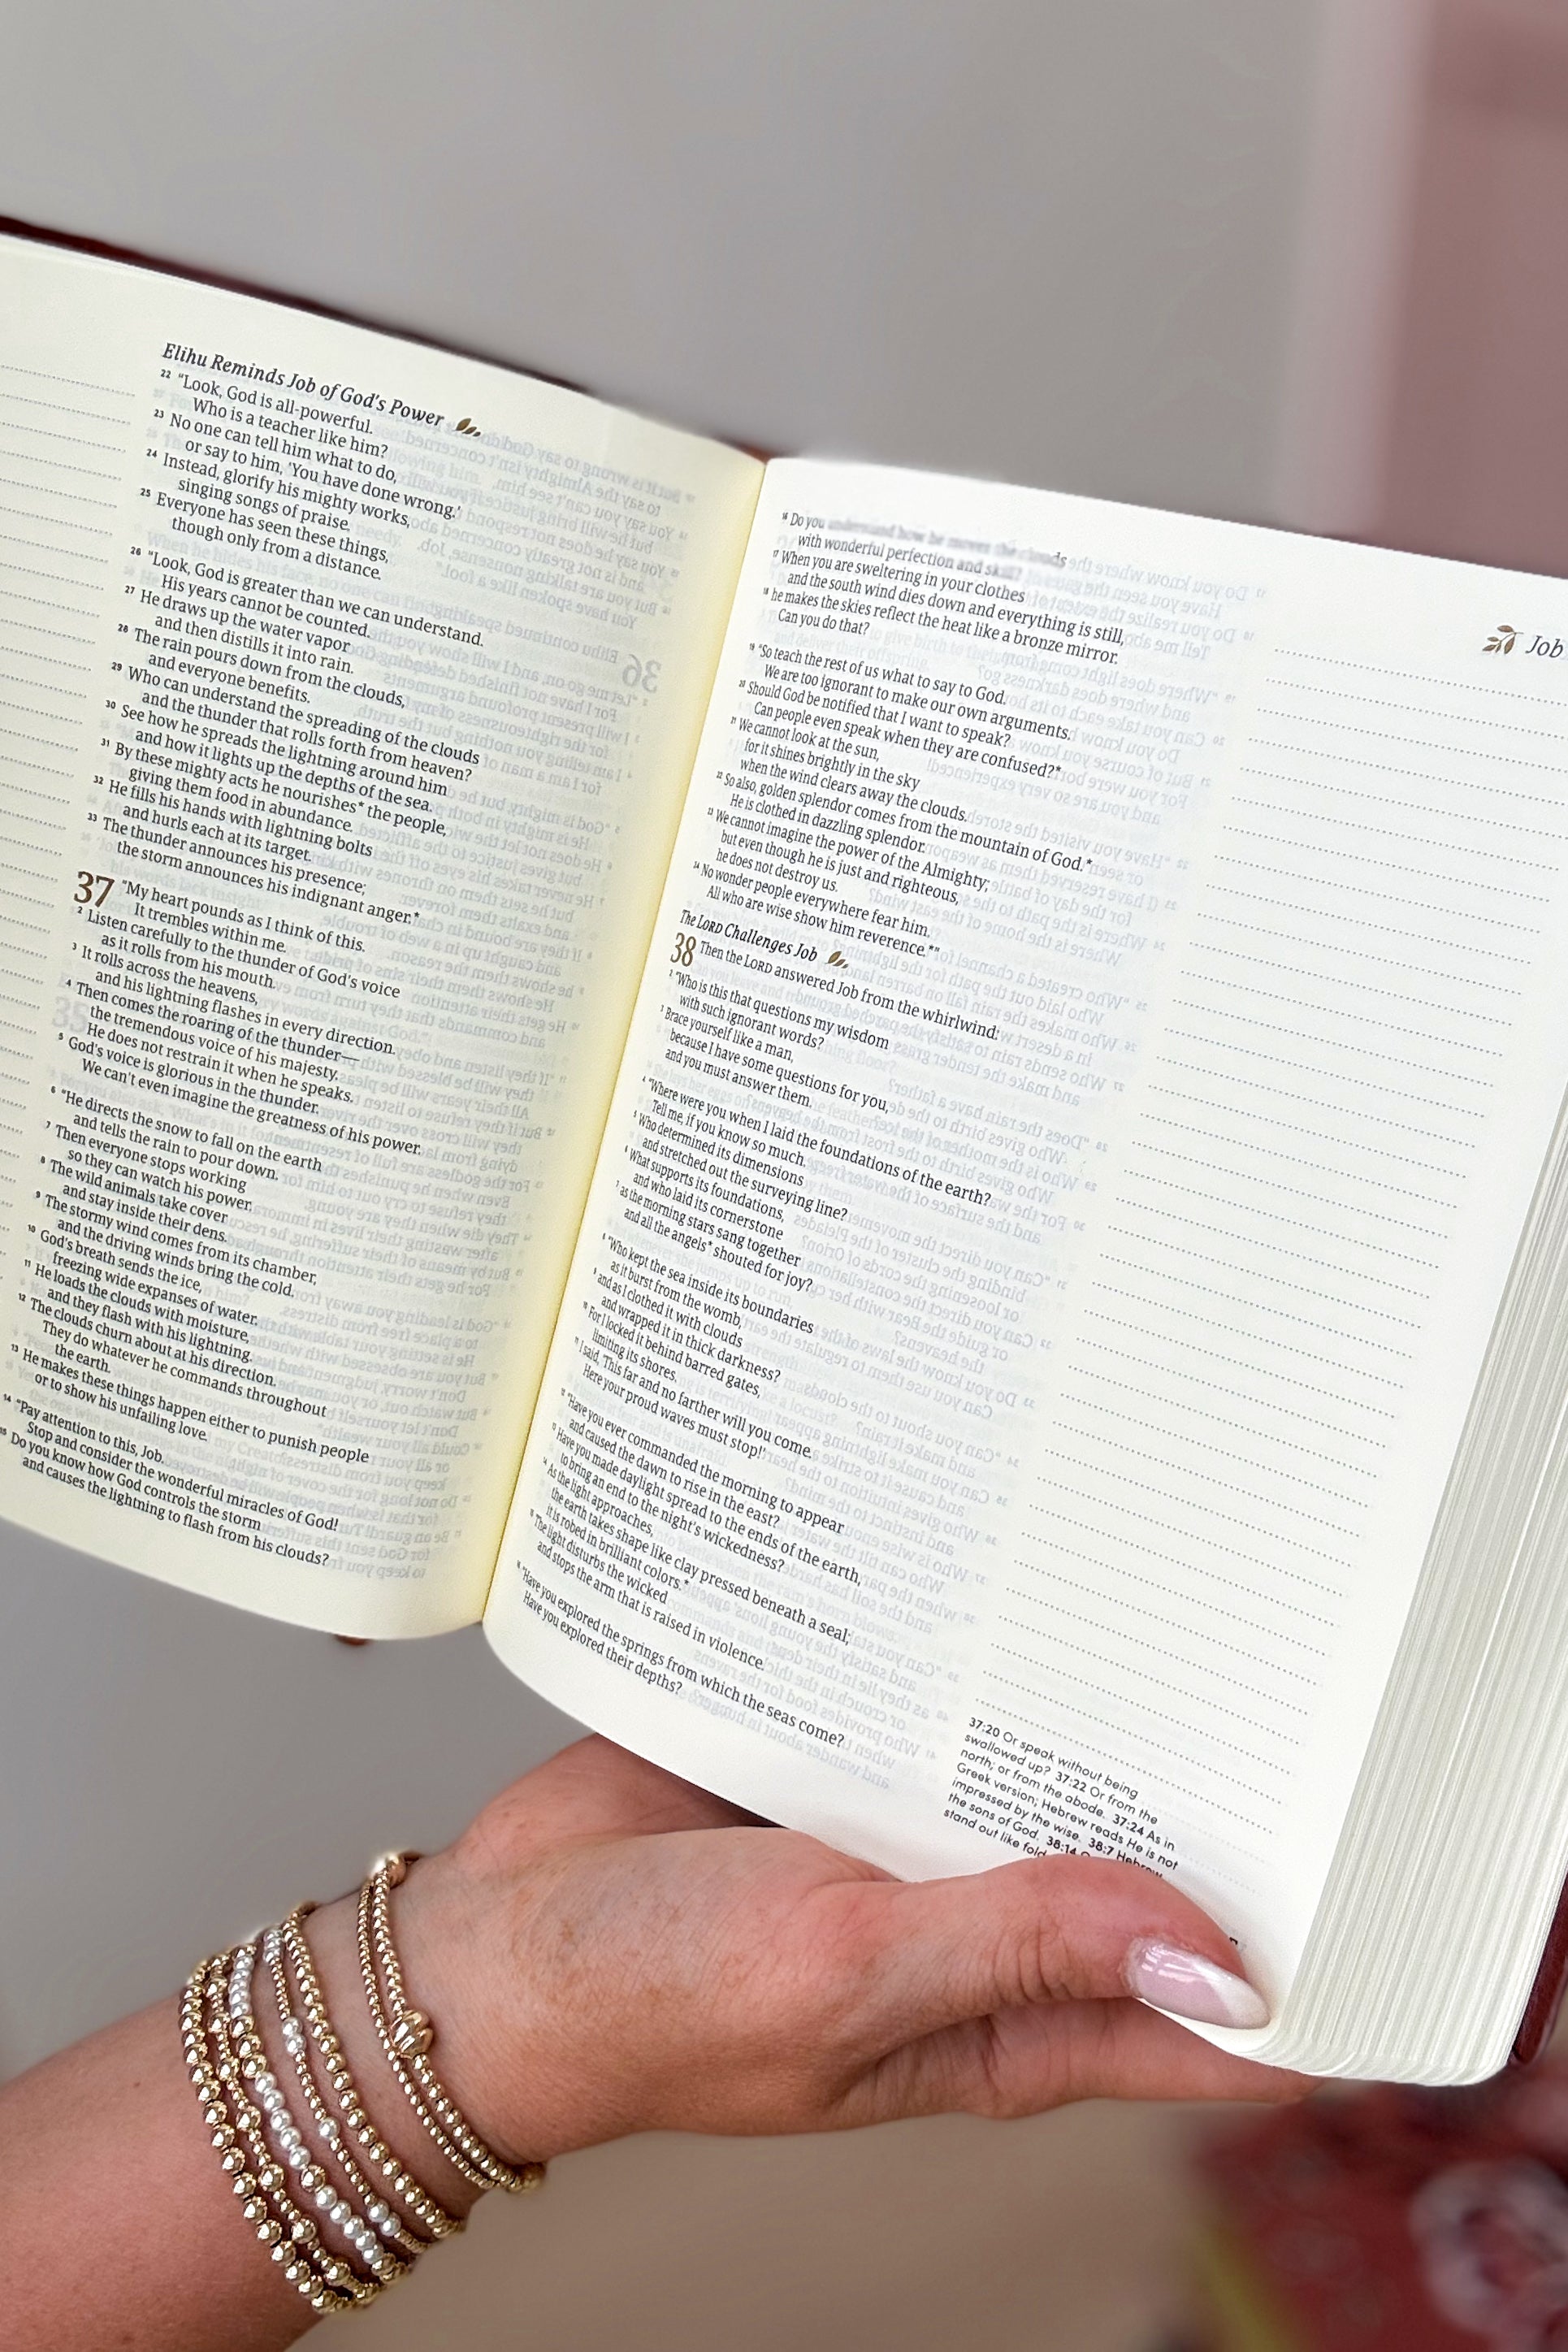 Elihu Reminds Job of God's Power
22 "Look, God is all-powerful.
Who is a teacher like him?
23 No one can tell him what to do,
or say to him, 'You have done wrong.'
24 Instead, glorify his mighty works,
singing songs of praise.
25 Everyone has seen these things,
though only from a distance.
26 "Look, God is greater than we can understand.
His years cannot be counted.
27 He draws up the water vapor
and then distills it into rain.
28 The rain pours down from the clouds,
and everyone benefits.
29 Who can understand the spreading of the clouds
and the thunder that rolls forth from heaven?
30 See how he spreads the lightning around him
and how it lights up the depths of the sea.
31 By these mighty acts he nourishes* the people,
giving them food in abundance.
32 He fills his hands with lightning bolts
and hurls each at its target.
33 The thunder announces his presence;
the storm announces his indignant anger.*
37 "My heart pounds as I think of this.
It trembles within me.
2 Listen carefully to the thunder of God's voice
as it rolls from his mouth.
3 It rolls across the heavens,
and his lightning flashes in every direction.
4 Then comes the roaring of the thunder—
the tremendous voice of his majesty.
He does not restrain it when he speaks.
5 God's voice is glorious in the thunder.
We can't even imagine the greatness of his power.
6 "He directs the snow to fall on the earth
and tells the rain to pour down.
7 Then everyone stops working
so they can watch his power.
8 The wild animals take cover
and stay inside their dens.
9 The stormy wind comes from its chamber,
and the driving winds bring the cold.
10 God's breath sends the ice,
freezing wide expanses of water.
11 He loads the clouds with moisture,
and they flash with his lightning.
12 The clouds churn about at his direction.
They do whatever he commands throughout
the earth.
13 He makes these things happen either to punish people
or to show his unfailing love.
14 "Pay attention to this, Job.
Stop and consider the wonderful miracles of God!
15 Do you know how God controls the storm
and causes the lightning to flash from his clouds?
Job
16 Do you understand how he moves the clouds
with wonderful perfection and skill?
17 When you are sweltering in your clothes
and the south wind dies down and everything is still,
18 he makes the skies reflect the heat like a bronze mirror.
Can you do that?
19 "So teach the rest of us what to say to God.
We are too ignorant to make our own arguments.
20 Should God be notified that I want to speak?
Can people even speak when they are confused?*
21 We cannot look at the sun,
for it shines brightly in the sky
when the wind clears away the clouds.
22 So also, golden splendor comes from the mountain of God.*
He is clothed in dazzling splendor.
23 We cannot imagine the power of the Almighty;
but even though he is just and righteous,
he does not destroy us.
24 No wonder people everywhere fear him.
All who are wise show him reverence.*"
The LORD Challenges Job
38 Then the LORD answered Job from the whirlwind:
2 "Who is this that questions my wisdom
with such ignorant words?
3 Brace yourself like a man,
because I have some questions for you,
and you must answer them.
4 "Where were you when I laid the foundations of the earth?
Tell me, if you know so much.
5 Who determined its dimensions
and stretched out the surveying line?
6 What supports its foundations,
and who laid its cornerstone
7 as the morning stars sang together
and all the angels* shouted for joy?
8 "Who kept the sea inside its boundaries
as it burst from the womb,
9 and as I clothed it with clouds
and wrapped it in thick darkness?
10 For I locked it behind barred gates,
limiting its shores.
11 I said, 'This far and no farther will you come.
Here your proud waves must stop!'
12 "Have you ever commanded the morning to appear
and caused the dawn to rise in the east?
13 Have you made daylight spread to the ends of the earth,
to bring an end to the night's wickedness?
14 As the light approaches,
the earth takes shape like clay pressed beneath a seal;
it is robed in brilliant colors.*
15 The light disturbs the wicked
and stops the arm that is raised in violence.
16 "Have you explored the springs from which the seas come?
Have you explored their depths?
37:20 Or speak without being
swallowed up? 37:22 Or from the
north; or from the abode. 37:24 As in
Greek version; Hebrew reads He is not
impressed by the wise. 38:7 Hebrew
the sons of God. 38:14
stand out like fold